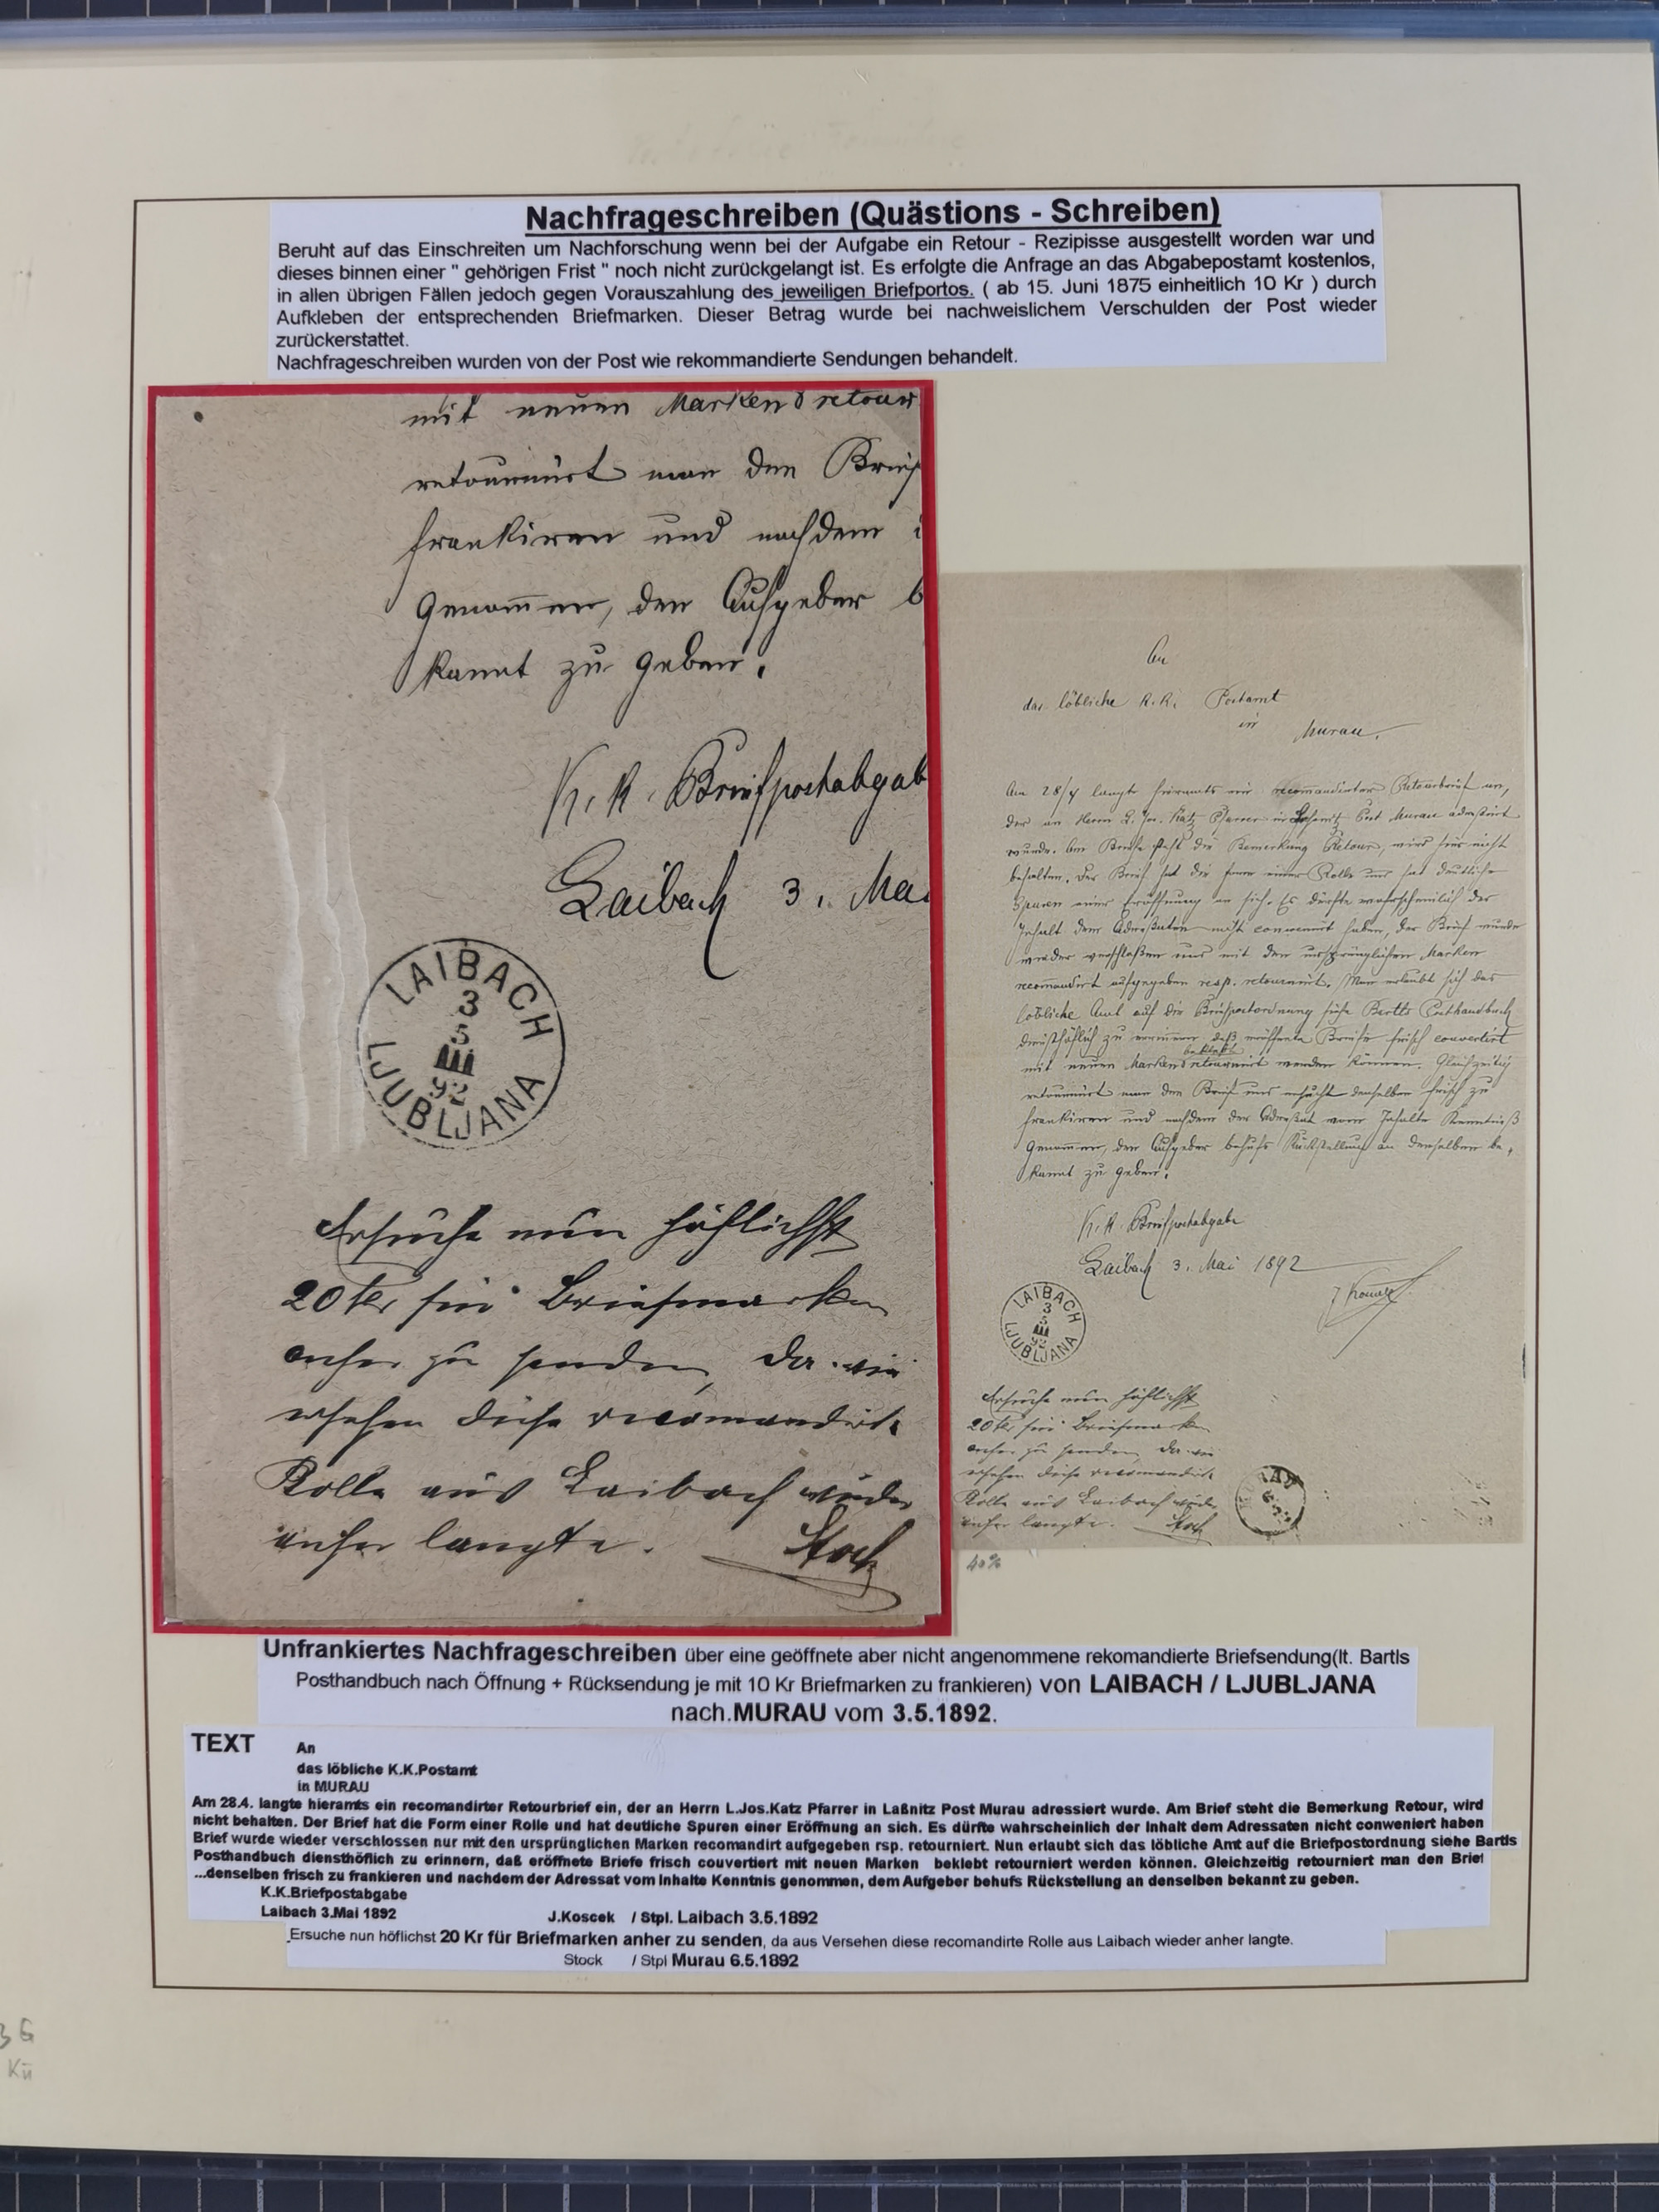 Nachfrageschreiben (Quästions - Schreiben)
Beruht auf das Einschreiten um Nachforschung wenn bei der Aufgabe ein Retour - Rezipisse ausgestellt worden war und
dieses binnen einer " gehörigen Frist " noch nicht zurückgelangt ist. Es erfolgte die Anfrage an das Abgabepostamt kostenlos,
in allen übrigen Fällen jedoch gegen Vorauszahlung des jeweiligen Briefportos. ( ab 15. Juni 1875 einheitlich 10 Kr ) durch
Aufkleben der entsprechenden Briefmarken. Dieser Betrag wurde bei nachweislichem Verschulden der Post wieder
zurückerstattet.
Nachfrageschreiben wurden von der Post wie rekommandierte Sendungen behandelt.
mit neuen Marken retour
retournirt man den Brief
frankiren und nachdem
Genommen, den Aufgeber b
kannt zu geben.
K. k. Briefpostabgab
Laibach 3. Mai
LAIBACH
3
5
92
LJUBLJANA
Ersuche nun höflichst
20 kr für Briefmarken
anher zu senden, da aus
ersehen diese recomandirte
Rolle aus Laibach wieder
anher langte. Stock
An
das löbliche K. K. Postamt
in
Murau.
Am 28/4 langte hieramts ein recommandirter Retourbrief ein,
der an Herrn L. Jos. Katz Pfarrer in Laßnitz Post Murau adressirt
wurde. Am Briefe steht die Bemerkung Retour, wird hier nicht
behalten. Der Brief hat die Form einer Rolle und hat deutliche
Spuren einer Eröffnung an sich. Es dürfte wahrscheinlich der
Inhalt dem Adreßaten nicht convenirt haben, der Brief wurde
wieder verschloßen und mit den ursprünglichen Marken
recomandirt aufgegeben resp. retournirt. Man erlaubt sich das
löbliche Amt auf die Briefpostordnung siehe Bartls Posthandbuch
diensthöflich zu erinnern, daß eröffnete Briefe frisch couvertirt
mit neuen Marken beklebt retournirt werden können. Gleichzeitig
retournirt man den Brief und ersucht denselben frisch zu
frankiren und nachdem der Adreßat vom Inhalte Kenntniß
Genommen, den Aufgeber behufs Rückstellung an denselben be,
kannt zu geben.
K. K. Briefpostabgabe
Laibach 3. Mai 1892
LAIBACH
3
5
92
LJUBLJANA
Ersuche nun höflichst
20 kr für Briefmarken
anher zu senden, da aus
ersehen diese recomandirte
Rolle aus Laibach wieder
anher langte. Stock
40%
Unfrankiertes Nachfrageschreiben über eine geöffnete aber nicht angenommene rekomandierte Briefsendung(lt. Bartls
Posthandbuch nach Öffnung + Rücksendung je mit 10 Kr Briefmarken zu frankieren) von LAIBACH / LJUBLJANA
nach.MURAU vom 3.5.1892.
TEXT An
das löbliche K.K.Postamt
in MURAU
Am 28.4. langte hieramts ein recomandirter Retourbrief ein, der an Herrn L.Jos.Katz Pfarrer in Laßnitz Post Murau adressiert wurde. Am Brief steht die Bemerkung Retour, wird
nicht behalten. Der Brief hat die Form einer Rolle und hat deutliche Spuren einer Eröffnung an sich. Es dürfte wahrscheinlich der Inhalt dem Adressaten nicht conweniert haben
Brief wurde wieder verschlossen nur mit den ursprünglichen Marken recomandirt aufgegeben rsp. retourniert. Nun erlaubt sich das löbliche Amt auf die Briefpostordnung siehe Bartls
Posthandbuch diensthöflich zu erinnern, daß eröffnete Briefe frisch couvertiert mit neuen Marken beklebt retourniert werden können. Gleichzeitig retourniert man den Brief
...denselben frisch zu frankieren und nachdem der Adressat vom Inhalte Kenntnis genommen, dem Aufgeber behufs Rückstellung an denselben bekannt zu geben.
K.K.Briefpostabgabe
Laibach 3.Mai 1892 J.Koscek / Stpl. Laibach 3.5.1892
Ersuche nun höflichst 20 Kr für Briefmarken anher zu senden, da aus Versehen diese recomandirte Rolle aus Laibach wieder anher langte.
Stock / Stpl Murau 6.5.1892